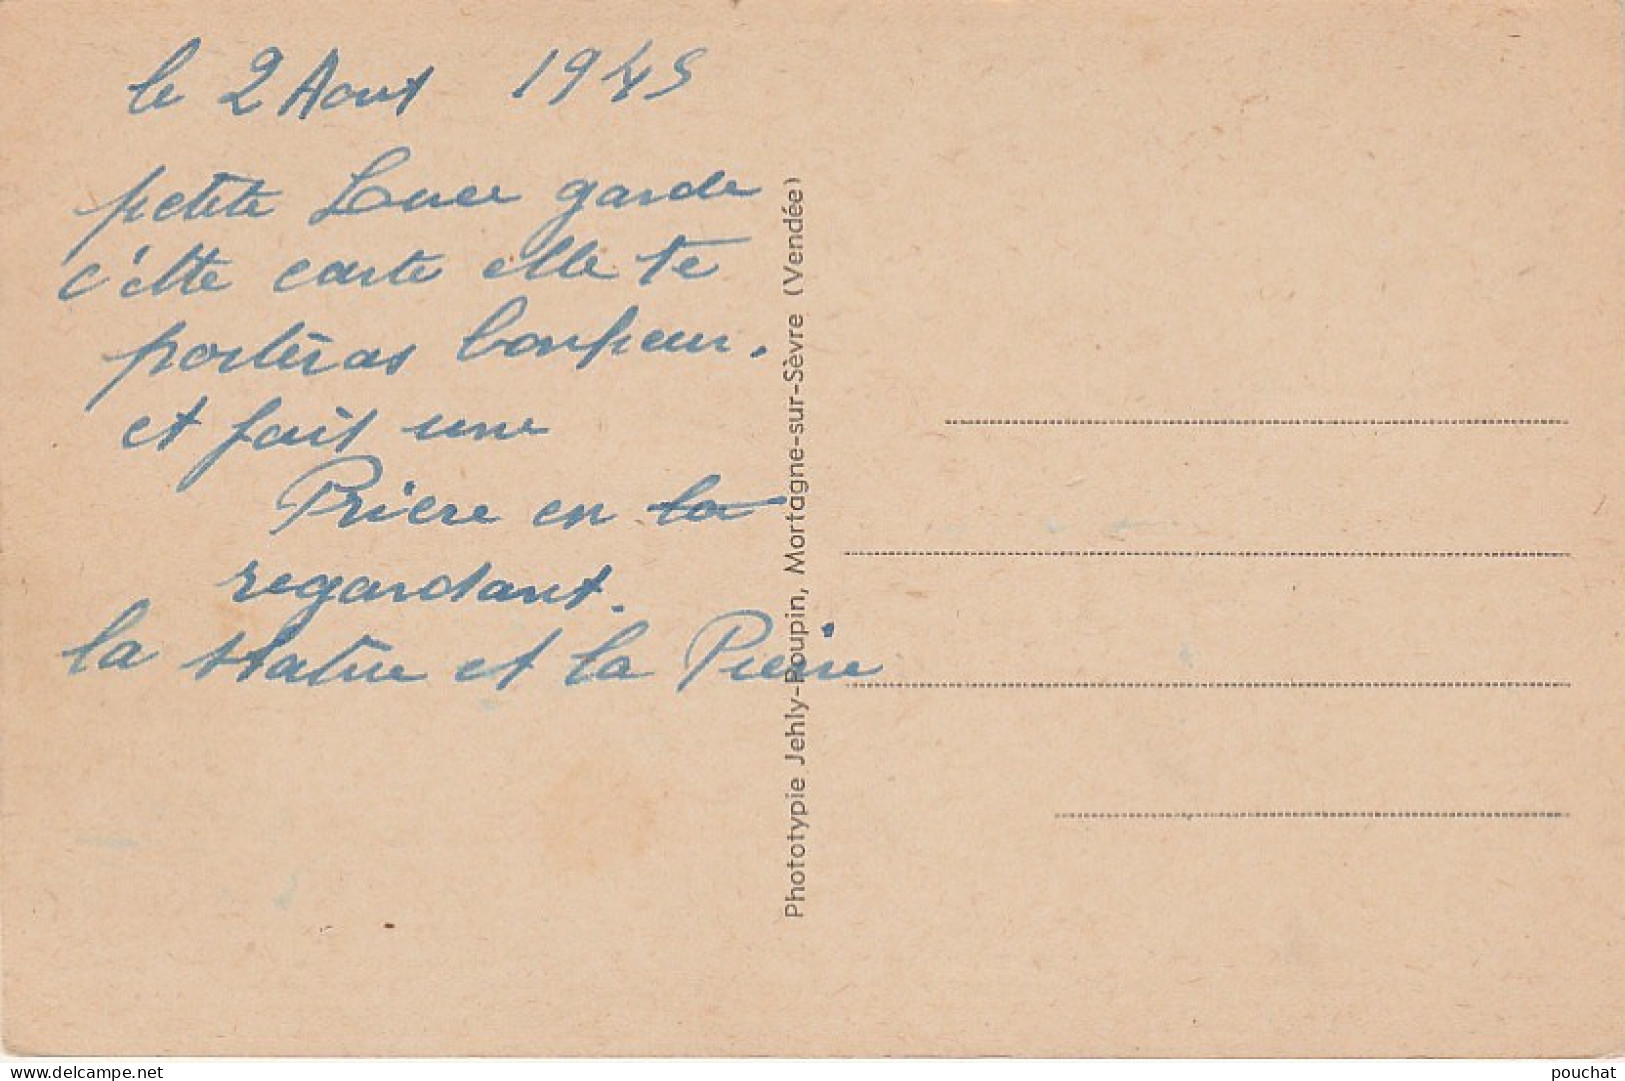 le 2 Aout 1945
petite Luce garde
c'ette carte elle te
porteras bonheur.
et fait une
Prière en la
regardant.
la statue et la Pierre
Phototypie Jehly-Poupin, Mortagne-sur-Sèvre (Vendée)
delcampe.net
pouchat